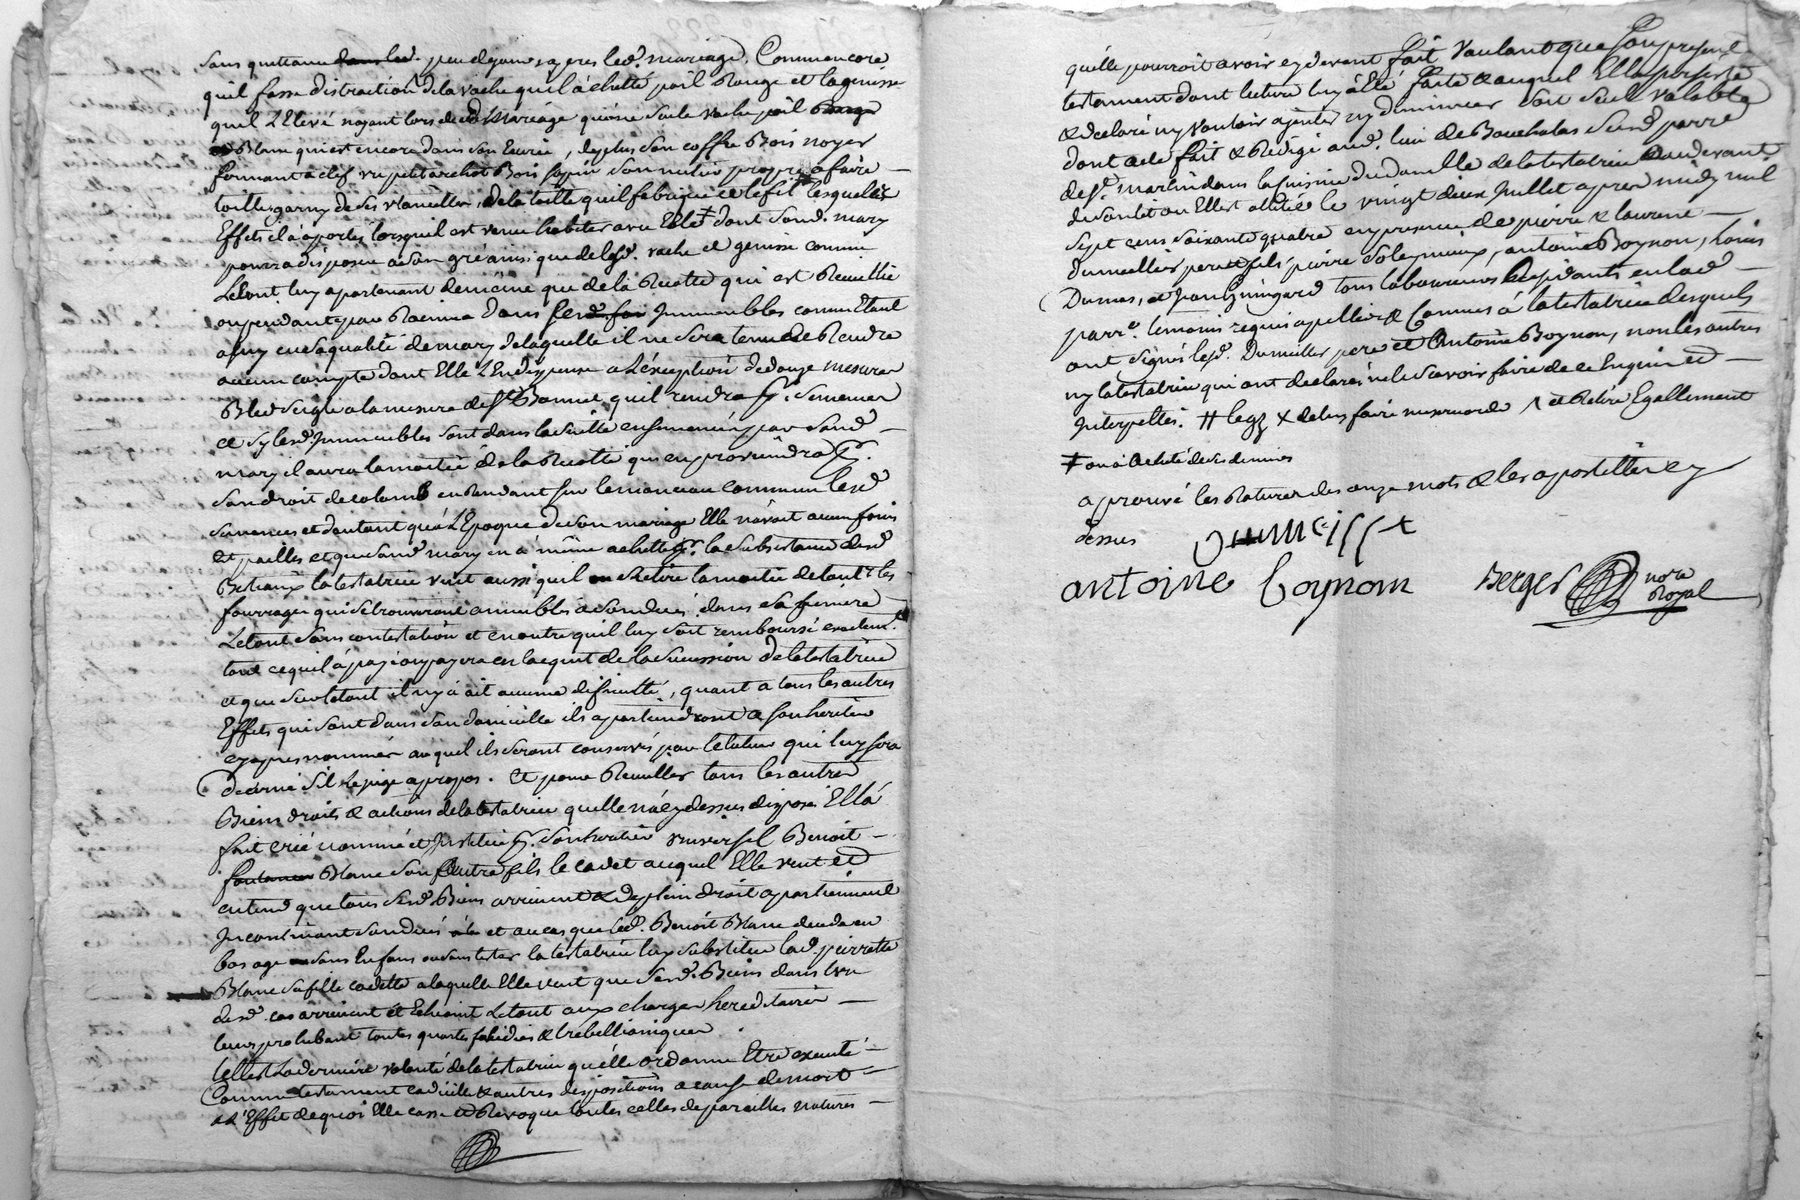 sans quittance peu de jours apres led. mariage. Comm'encore
qu'il fasse distraction de la vache qu'il à achetté poil Rouge et la genisse
quel L'Elevé nayant lors dud. Mariage qu'une seule vache poil Rouge
Blanc qui est encore dans son Ecurie, de plus son coffre Bois noyer
fermant a clef un petit archot Bois sapin son mêtier propre a faire
toille, garny de ses vtancilles, de la toille qu'il fabrique et le fil lesquelles
Effets il à aportés lorsquil est venu habiter avec Elle ‡ dont sond. mary
pourra disposer a son gré ainsi que desd. vache et genisse comme
Le tout luy apartenant de même que de la Recolte qui est Recueillie
ou pendante par Racine dans sesd. Immeubles comm'Etant
a luy en sa qualité de mary de laquelle il ne sera tenu de Rendre
aucun compte dont Elle L'En dispense a L'éxception de douze mesures
Bled Seigle a la mesure de St. Bonnet qu'il rendra p. Semences
et sy lesd. Immeubles sont dans la suitte ensemencés par sond.
mary il aura la moitié de la Recolte qui en proviendra p.
son droit de colon en Rendant sur le monceau commun lesd.
semences et d'autant qu'a L'Epoque de son mariage Elle n'avoit aucun foins
et pailles et que sond. mary en a même achetté p. la subsistance desd.
Bestiaux la testatrice veut aussi qu'il Retire la moitié de tous les
fourrages qui se trouveront amublés a son deces dans sa fenniere
Le tout sans contestation et en outre qu'il luy soit remboursé exactem.
tout ce qu'il à payé ou payera en lacquit de la succession de la testatrice
et que sur le tout il n'y à ait aucune dificulté, quant a tous les autres
Effets qui sont dans son domicille ils apartiendront a son heritier
cy apres nommé auquel ils seront conservés par le tuteur qui luy sera
decerné s'il le juge apropos. Et pour Recueillir tous les autres
Biens droits & actions de la testatrice quelle n'à cy dessus disposé Ell'à
fait créé nommé et Institué p. son heritier vniversel Benoit
Blanc son autre fils le cadet auquel Elle veut et
entend que tous sesd. Biens arrivent & de plein droit apartiennent
Incontinant son deces et au cas que led. Benoit Blanc decede en
bas age ou sans Enfans ou sans tester la testatrice luy substitue lad. pierrette
Blanc sa fille cadette a laquelle Elle veut que sesd. Biens dans l'un
desd. cas arrivent et Echoint Le tout aux charges hereditaires
leurs prohibant toutes quartes falcidies & trebellianiques.
telle est La derniére volonté de la testatrice qu'élle ordonne Etre executé
Comme testament codicille & autres dispositions a cause de mort
a L'Effet de quoi Elle casse et Revoque toutes celles de pareilles natures
qu'élle pourroit avoir cy devant fait voulant que son present
testament dont lecture luy à Eté faite & auquel Elle persiste
& declaré n'y vouloir ajouter ny diminuer soit seul valable
dont acte fait & Redigé aud. lieu de Bouchalas Susd. parre
de St. martin dans la Cuisine du domicille de la testatrice au devant
de son lit ou Elle est alitée le vingt deux Juillet apres midy mil
sept cens soixante quatre en presence de pierre & laurent
Dumeillier pere et fils, pierre Soleymieux, antoine Boynon, Louis
Dumas, et Jean Guingard tous laboureurs Residants en lad.
parr.e temoins requis apellés & Connus à la testatrice desquels
ont signés lesd. Dumillier pere et Antoine Boynon, non les autres
ny la testatrice qui ont declarés ne le sçavoir faire de ce Enquis et
Interpellés. # legz x de lui faire misericorde ^ et Retiré Egallement
‡ ou à Acheté de ses deniers
aprouvé les Ratures des onze mots & les apostilles cy
dessus
antoine boynon Berger no.re
Royal